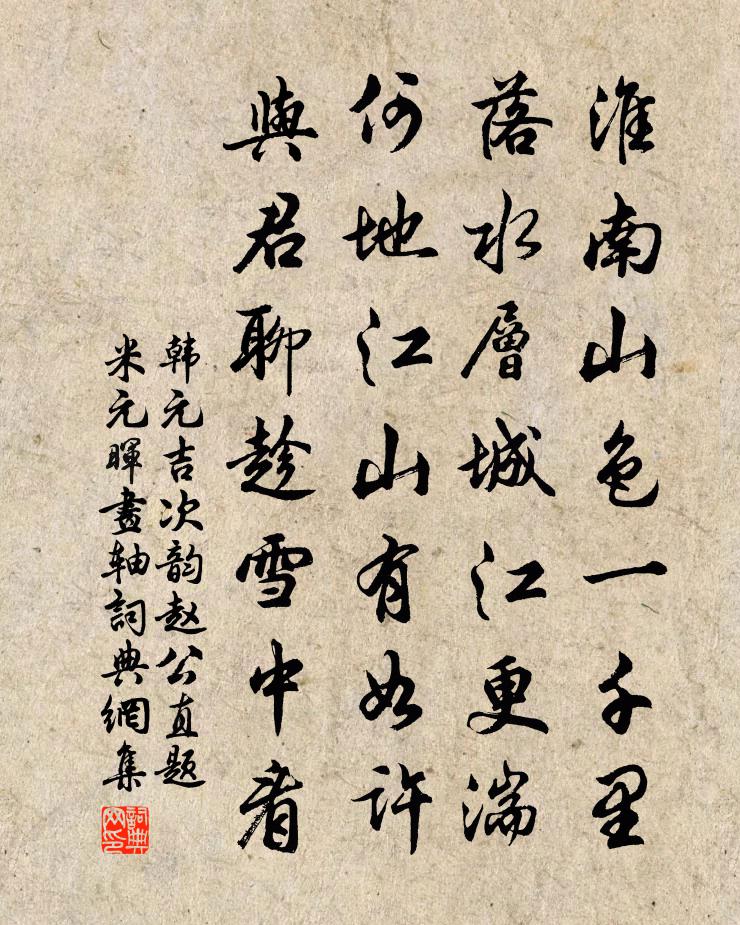 淮南山色一千里
落水層城江更湍
何地江山有如許
與君聊趁雪中看
韩元吉次韵赵公直题
米元暉畫轴詞典網集
詞典网印